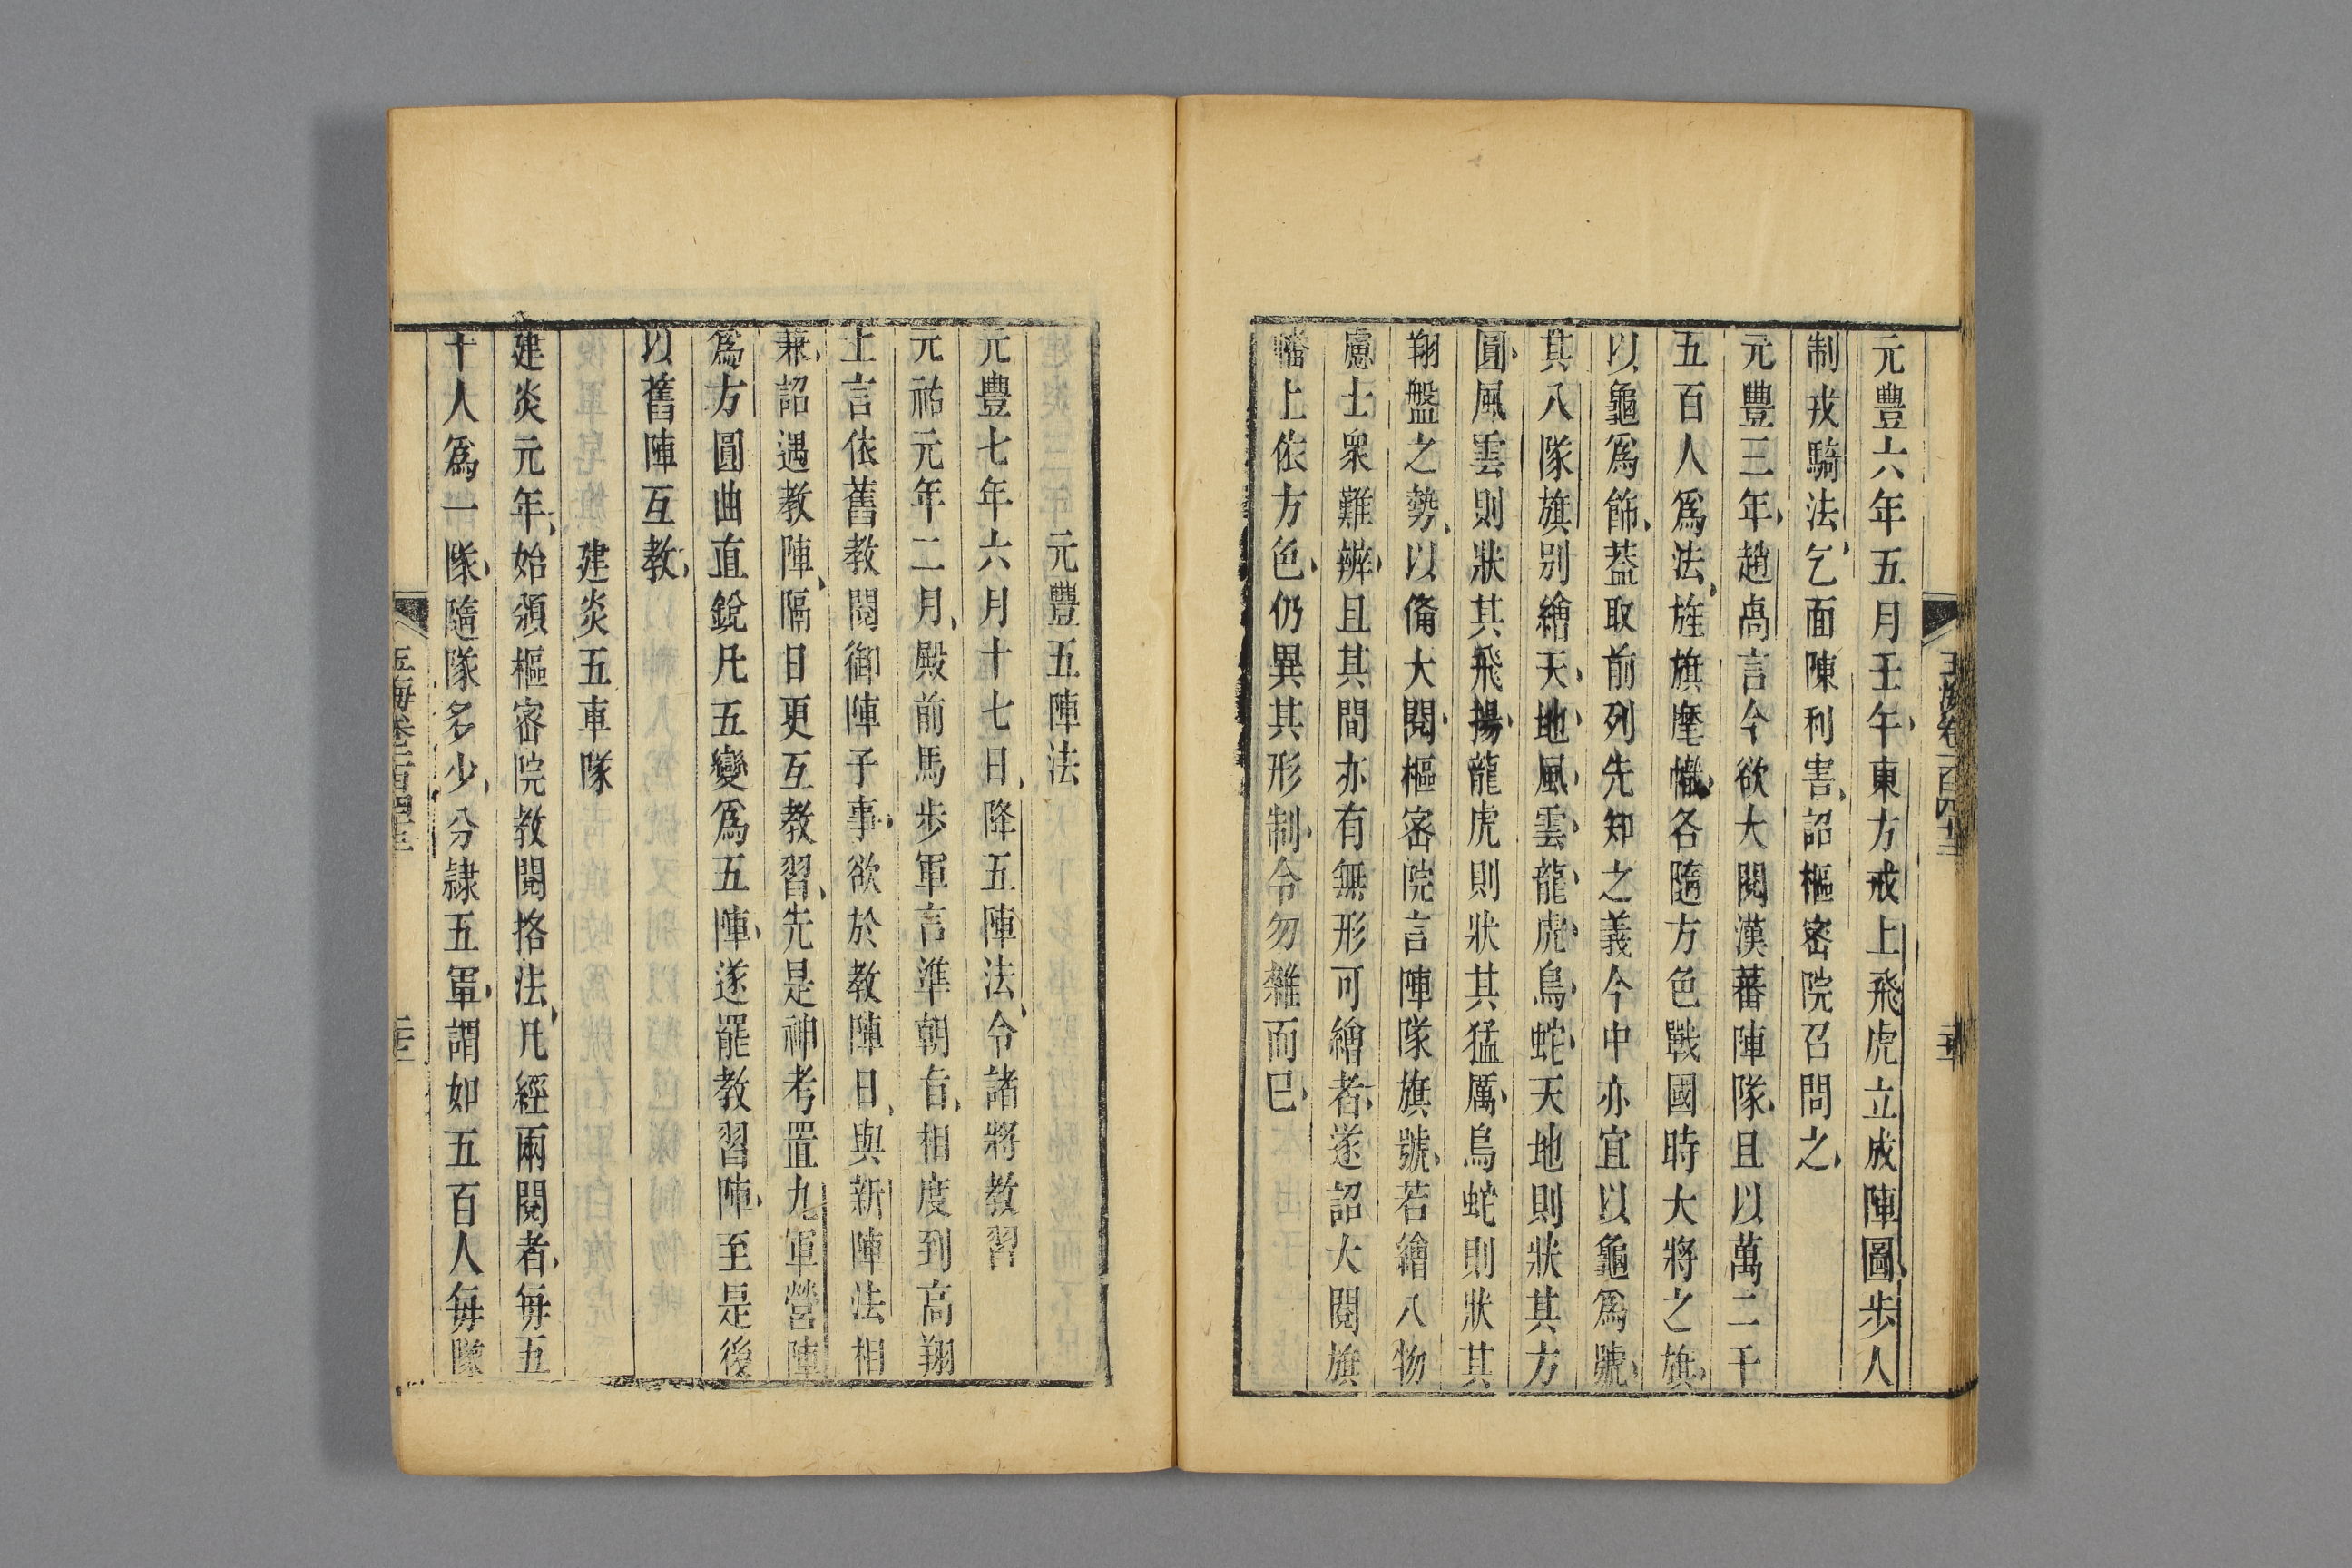 元豐六年五月壬午東方戒上飛虎立成陣圖步人
制戎騎法乞面陳利害詔樞密院召問之
元豐三年趙卨言今欲大閱漢蕃陣隊且以萬二千
五百人爲法旌旗麾幟各隨方色戰國時大將之旗
以龜爲飾葢取前列先知之義今中亦宜以龜爲號
其八隊旗别繪天地風雲龍虎鳥蛇天地則狀其方
圓風雲則狀其飛揚龍虎則狀其猛厲鳥蛇則狀其
翔盤之勢以備大閱樞宻院言陣隊旗號若繪八物
慮士衆難辨且其間亦有無形可繪者遂詔大閱旗
幡上依方色仍異其形制令勿雜而已
元豐五陣法
元豐七年六月十七日降五陣法令諸將教習
元祐元年二月殿前馬步軍言準朝旨相度到高翔
上言依舊教閱御陣子事欲於教陣日與新陣法相
兼詔遇教陣隔日更互教習先是神考置九軍營陣
爲方圓曲直銳凡五變爲五陣遂罷教習陣至是後
以舊陣互教
建炎五車隊
建炎元年始頒樞密院教閱格法凡經兩閱者每五
十人爲一隊隨隊多少分隸五軍謂如五百人每隊
玉海卷一百四十三